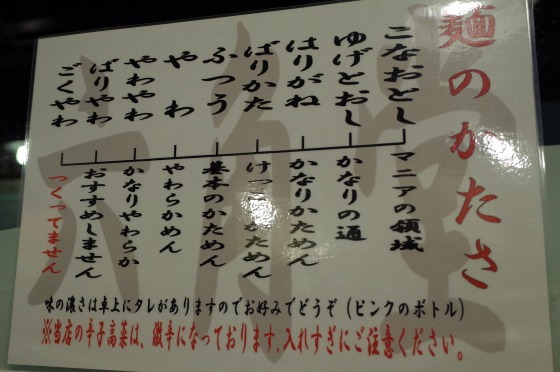 麺のかたさ
こなおとし
ゆげどおし
はりがね
ばりかた
ふつう
やわ
やわやわ
ばりやわ
ごくやわ
マニアの領域
かなりの通
かなりかためん
けっこうかためん
基本のかためん
やわらかめん
かなりやわらか
おすすめしません
つくってません
味の濃さは卓上にタレがありますのでお好みでどうぞ（ピンクのボトル）
※当店の辛子高菜は、激辛になっております、入れすぎにご注意ください。
六角堂